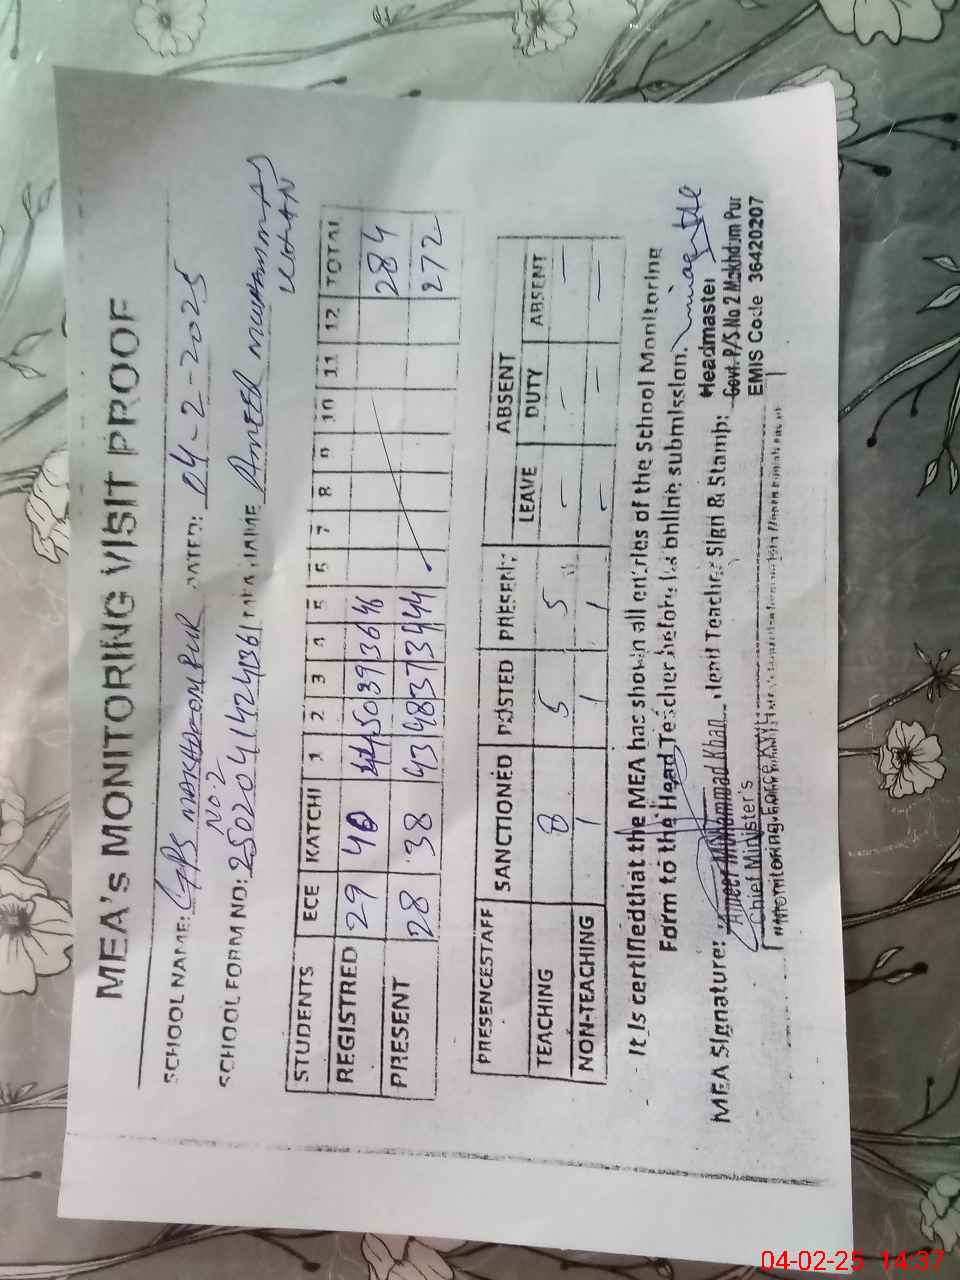 MEA's MONITORING VISIT PROOF
SCHOOL NAME: GPS MAKHDOOM PUR DATED: 04-2-2025
NO.2
SCHOOL FORM NO: MEA NAME AMEER MUHAMMAD
KHAN
STUDENTS ECE KATCHI 1 2 3 4 5 6 7 8 9 10 11 12 TOTAL
REGISTRED 29 40 44 50 39 36 46 284
PRESENT 28 38 43 48 37 34 44 272
PRESENCESTAFF SANCTIONED POSTED PRESENT ABSENT
LEAVE DUTY ABSENT
TEACHING 8 5 5 - - -
NON-TEACHING 1 1 1 - - -
It Is certifiedthat the MEA has shown all entries of the School Monitoring
Form to the Head Teacher before its online submission.
MEA Signature: Ameer Mohammad Khan Head Teacher Sign & Stamp: Headmaster
Chief Minister's Govt. P/S No 2 Makhdum Pur
Monitoring Force EMIS Code 36420207
04-02-25 14:37